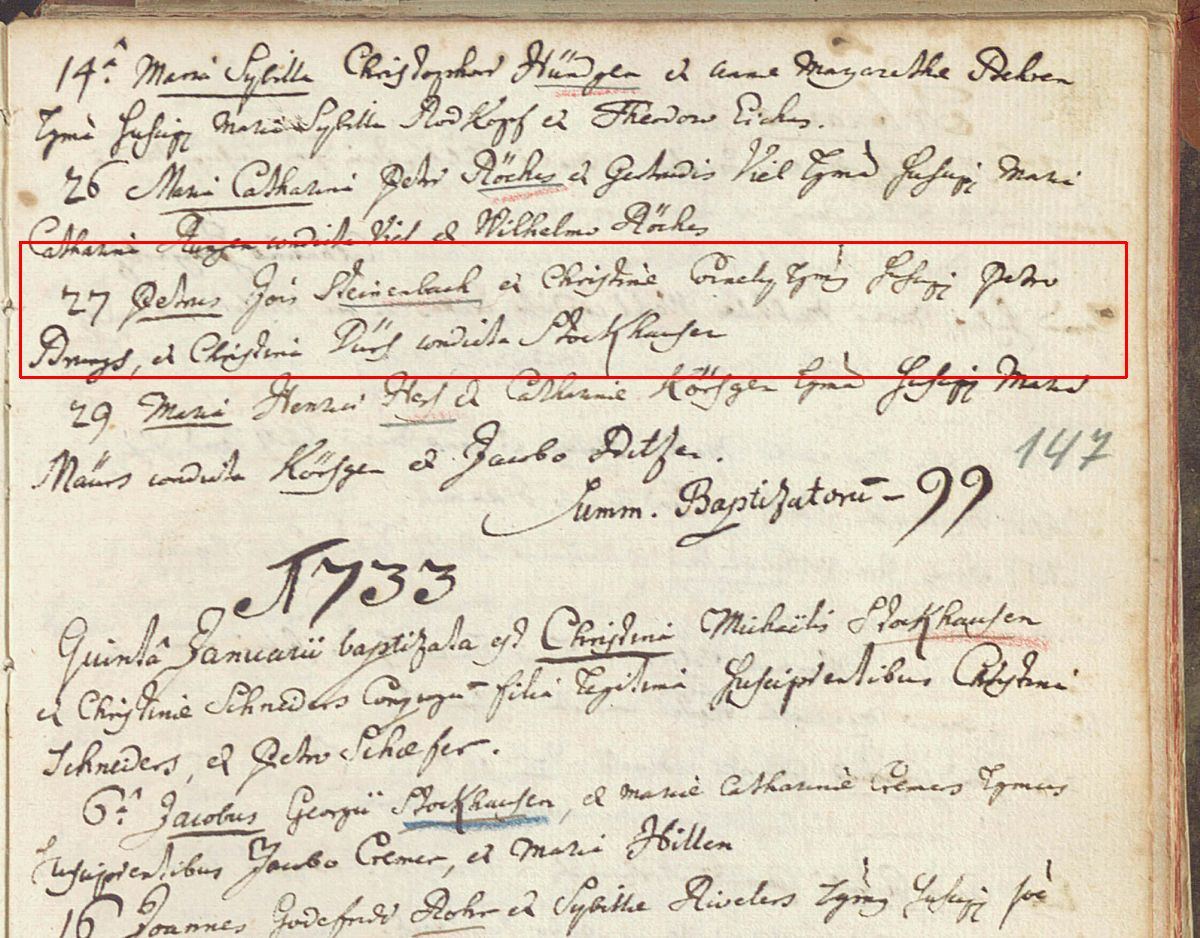 14ᵃ Maria Sybilla Christophori Hündgen et Annae Margarethae
Lgma suscip Maria Sybilla Rodkopf et Theodoro Eiches.
26 Maria Catharina Petri Röches et Gertrudis Viel Lgma suscip Maria
Catharina condicta Viel et Wilhelmo Röches
27 Petrus Jois Steinenbach et Christinae Lgmus suscip Petro
et Christina condicta Stockhausen
29 Maria Henrici et Catharinae Körsgen Lgma suscip Maria
Maürs condicta Körsgen et Jacobo
Summ. Baptizatorū – 99
147
1733
Quintâ Januarii baptizata est Christina Michaëlis Stockhausen
et Christinae Schneders Conjugū filia legitima suscipientibus Christina
Schneders, et Petro Schaefer.
6ᵗᵃ Jacobus Georgii Stockhausen, et Mariae Catharinae Cremers Lgmus
suscipientibus Jacobo Cremer, et Maria Hillen
16 Joannes Godefridi Rohr et Sybillae Rivelers Lgmus suscip joe